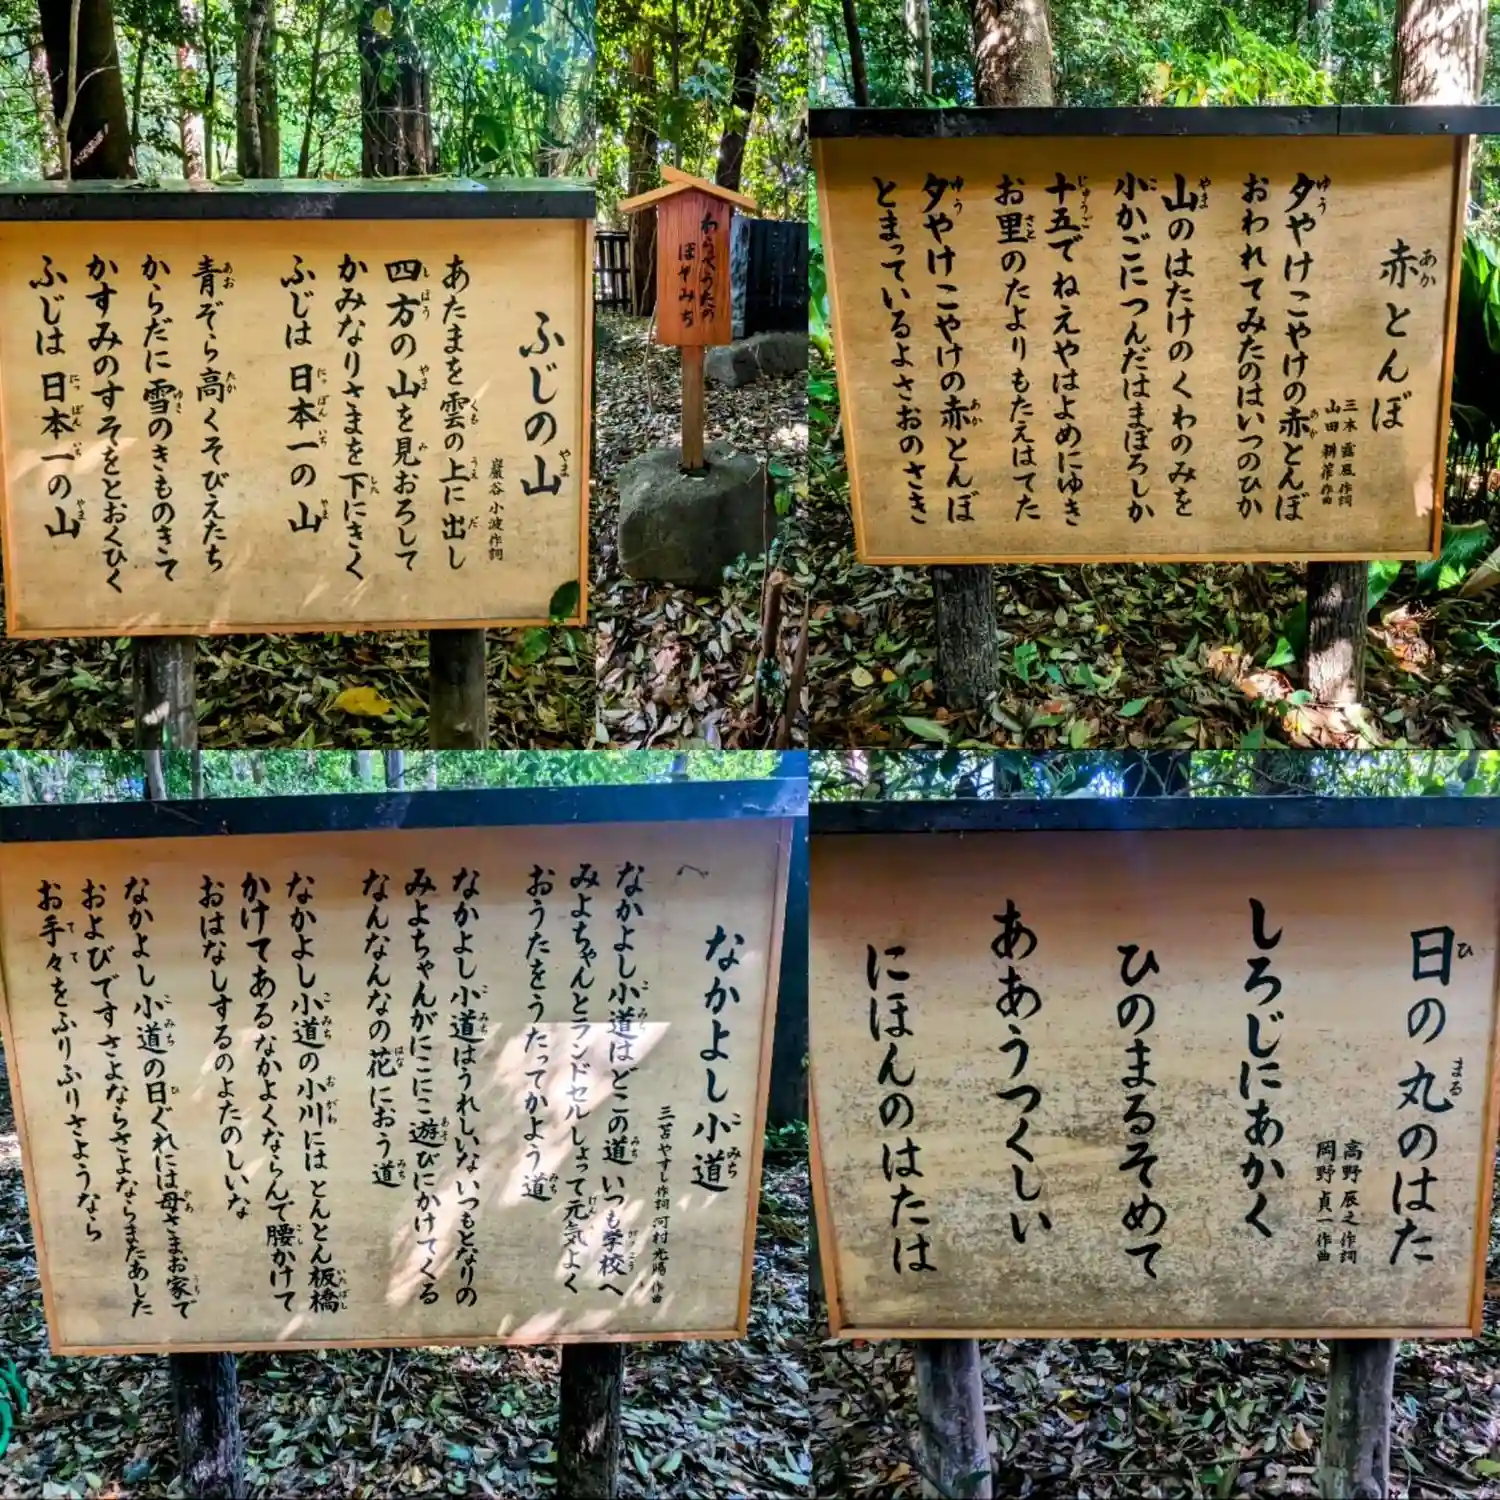 ふじの山
巌谷小波作詞
あたまを雲の上に出し
四方の山を見おろして
かみなりさまを下にきく
ふじは 日本一の 山
青ぞら高くそびえたち
からだに雪のきものきて
かすみのすそをとおくひく
ふじは 日本一の 山
わらべうたの
ほそみち
赤とんぼ
三木 露風 作詞
山田 耕筰 作曲
夕やけこやけの赤とんぼ
おわれてみたのはいつのひか
山のはたけのくわのみを
小かごにつんだはまぼろしか
十五でねえやはよめにゆき
お里のたよりもたえはてた
夕やけこやけの赤とんぼ
とまっているよさおのさき
なかよし小道
三苫やすし作詞 河村光陽 作曲
なかよし小道はどこの道 いつも学校へ
みよちゃんとランドセルしょって元気よく
おうたをうたってかよう道
なかよし小道はうれしいな いつもとなりの
みよちゃんがにこにこ遊びにかけてくる
なんなんなの花 におう道
なかよし小道の小川には とんとん板橋
かけてあるなかよくならんで腰かけて
おはなしするのよたのしいな
なかよし小道の日ぐれには母さまお家で
およびです さよならさよならまたあした
お手々をふりふりさようなら
日の丸のはた
高野 辰之 作詞
岡野 貞一 作曲
しろじにあかく
ひのまるそめて
ああうつくしい
にほんのはたは